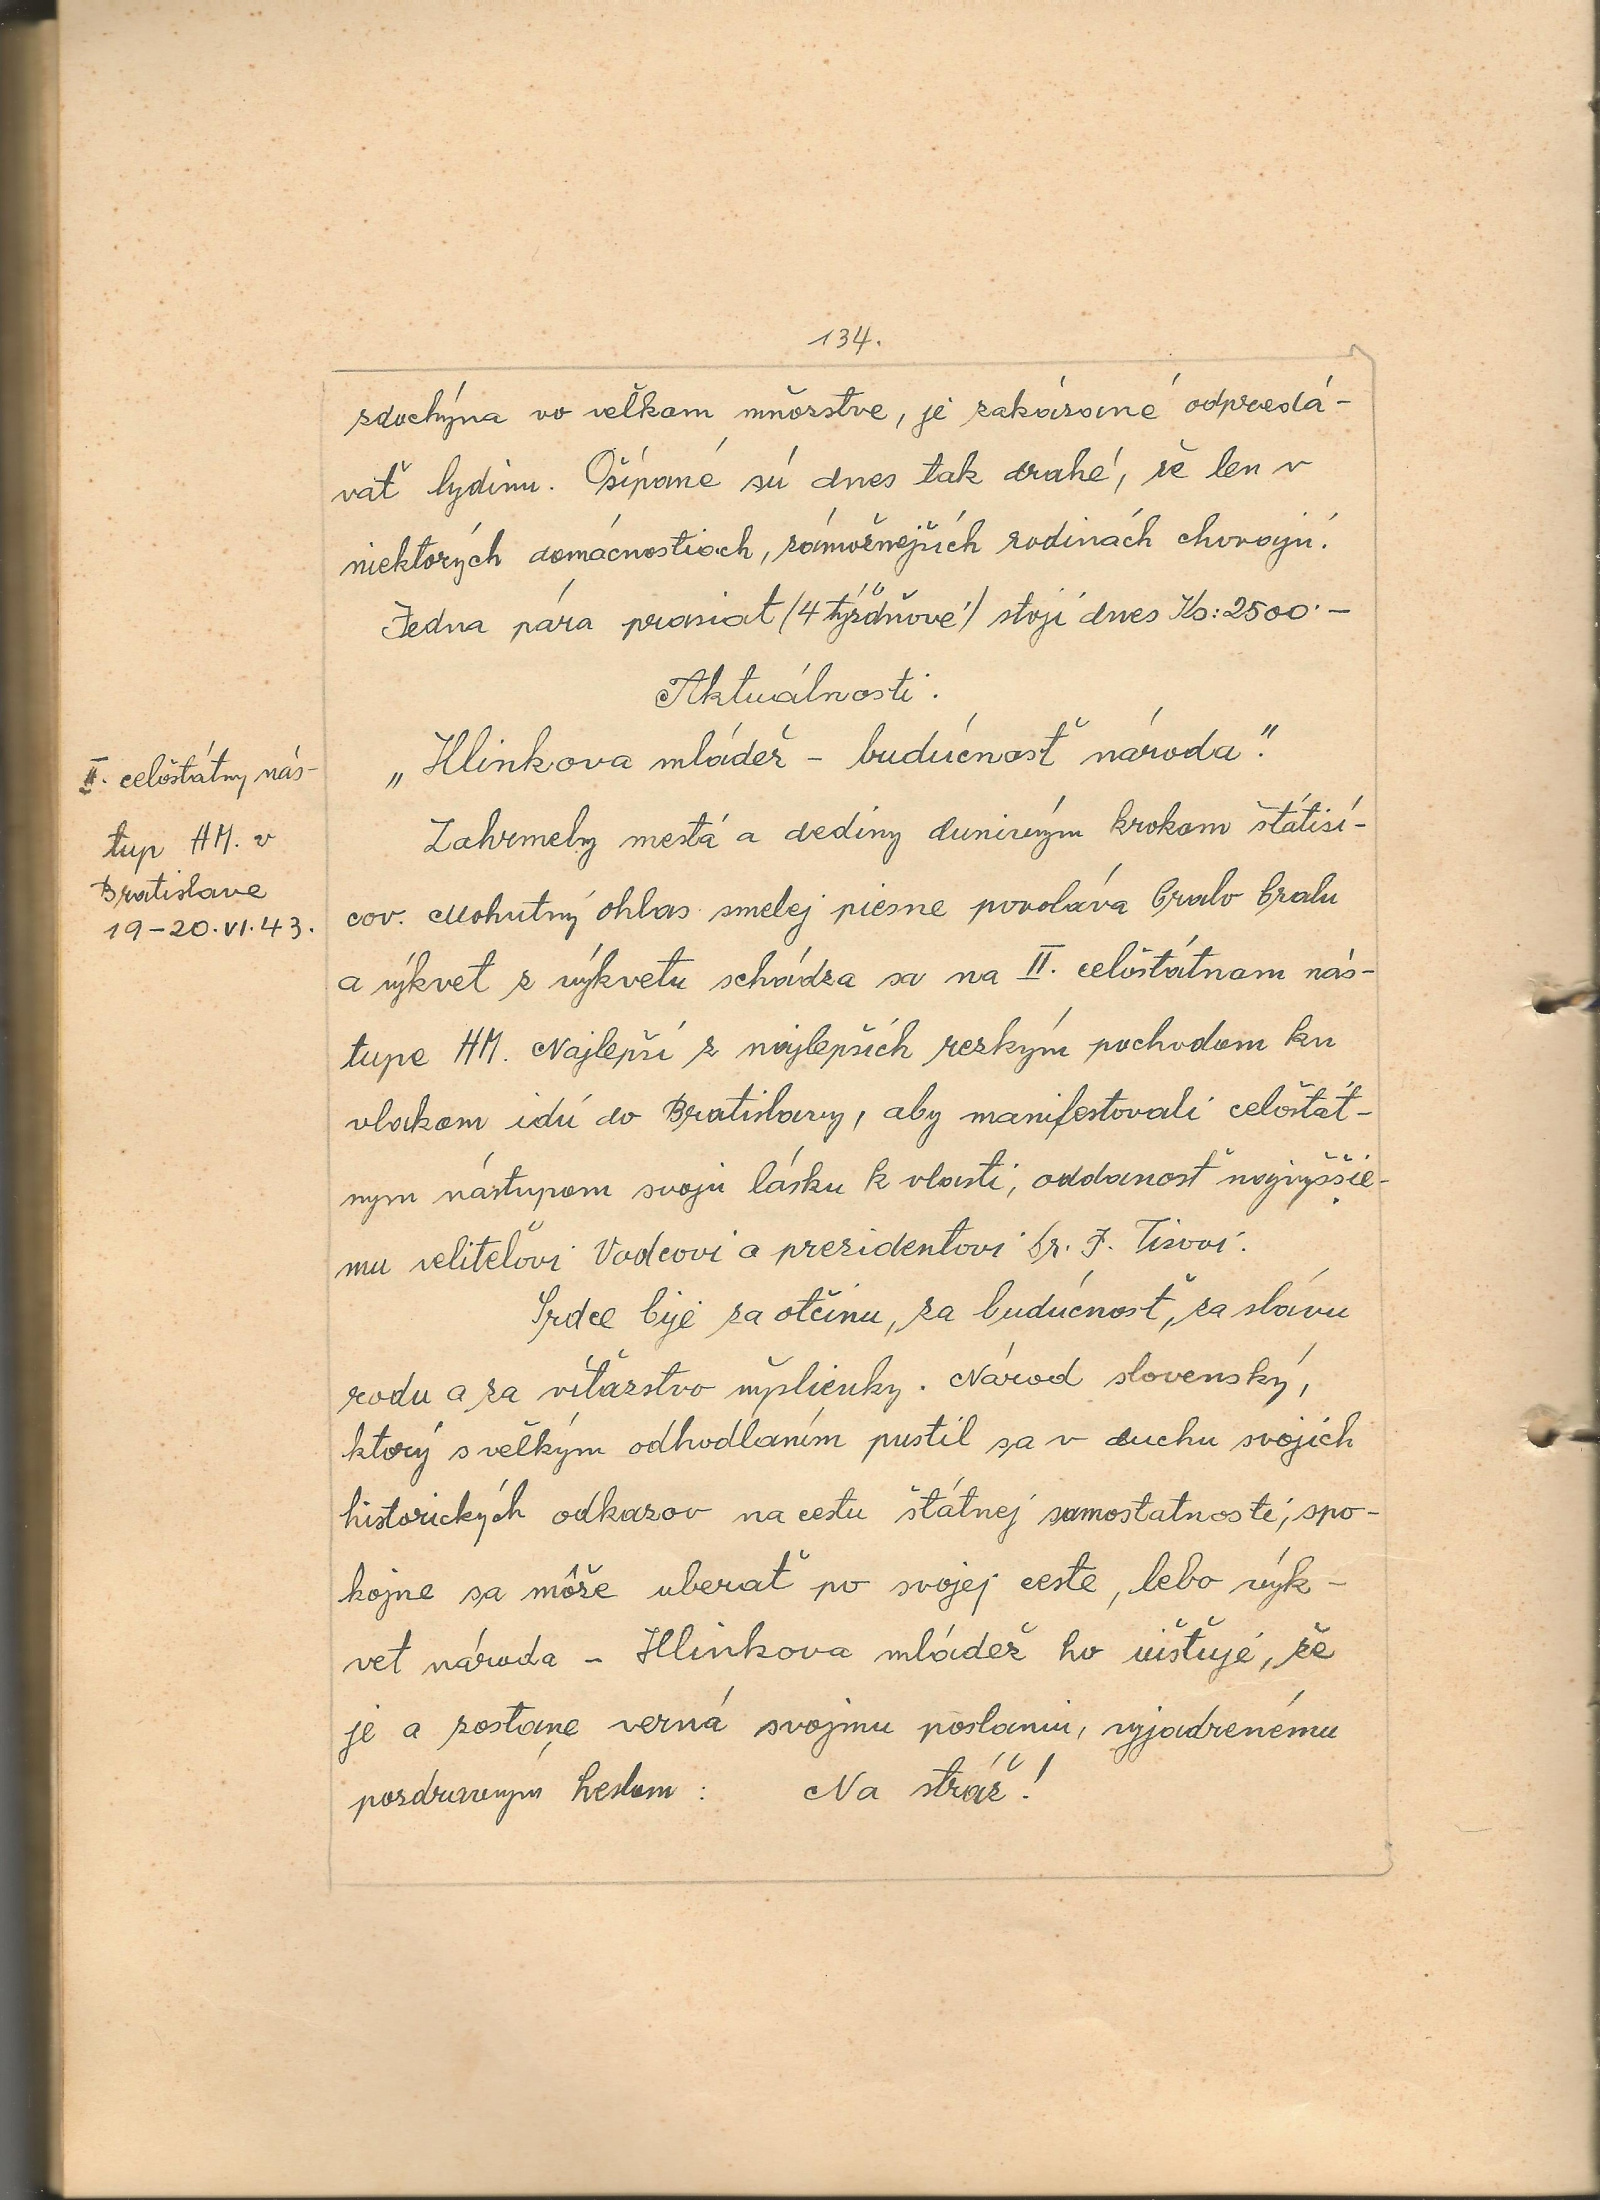 134.
zdochýna vo veľkom mňozstve, je zakázané odpredá-
vať ľydimu. Ošípané sú dnes tak drahé, že len v
niektorých domácnostiach, zámožnejších rodinách chovajú.
Jedna pára prasiat (4 týždňové) stojí dnes Ks: 2500·-
Aktuálnosti.
„Hlinkova mládež - budúcnosť národa".
II. celoštátny nás-
tup HM. v
Bratislave
19-20.VI.43.
Zahrmely mestá a dediny dunivým krokom státisí-
cov. Mohutný ohlas smelej piesne povoláva brato bratu
a výkvet z výkvetu schádza sa na II. celoštátnom nás-
tupe HM. Najlepší z najlepších rezkým pochodom ku
vlakom idú do Bratislavy, aby manifestovali celoštát-
nym nástupom svoju lásku k vlasti, oddanosť najvyššie-
mu veliteľovi Vodcovi a prezidentovi Dr. J. Tisovi.
Srdce bije za otčinu, za budúcnosť, za slávu
rodu a za víťazstvo myšlienky. Národ slovenský,
ktorý s veľkým odhodlaním pustil sa v duchu svojich
historických odkazov na cestu štátnej samostatnosti, spo-
kojne sa môže uberať po svojej ceste, lebo výk-
vet národa - Hlinkova mládež ho uisťuje, že
je a zostane verná svojmu poslaniu, vyjadrenému
pozdravným heslom: Na stráž!